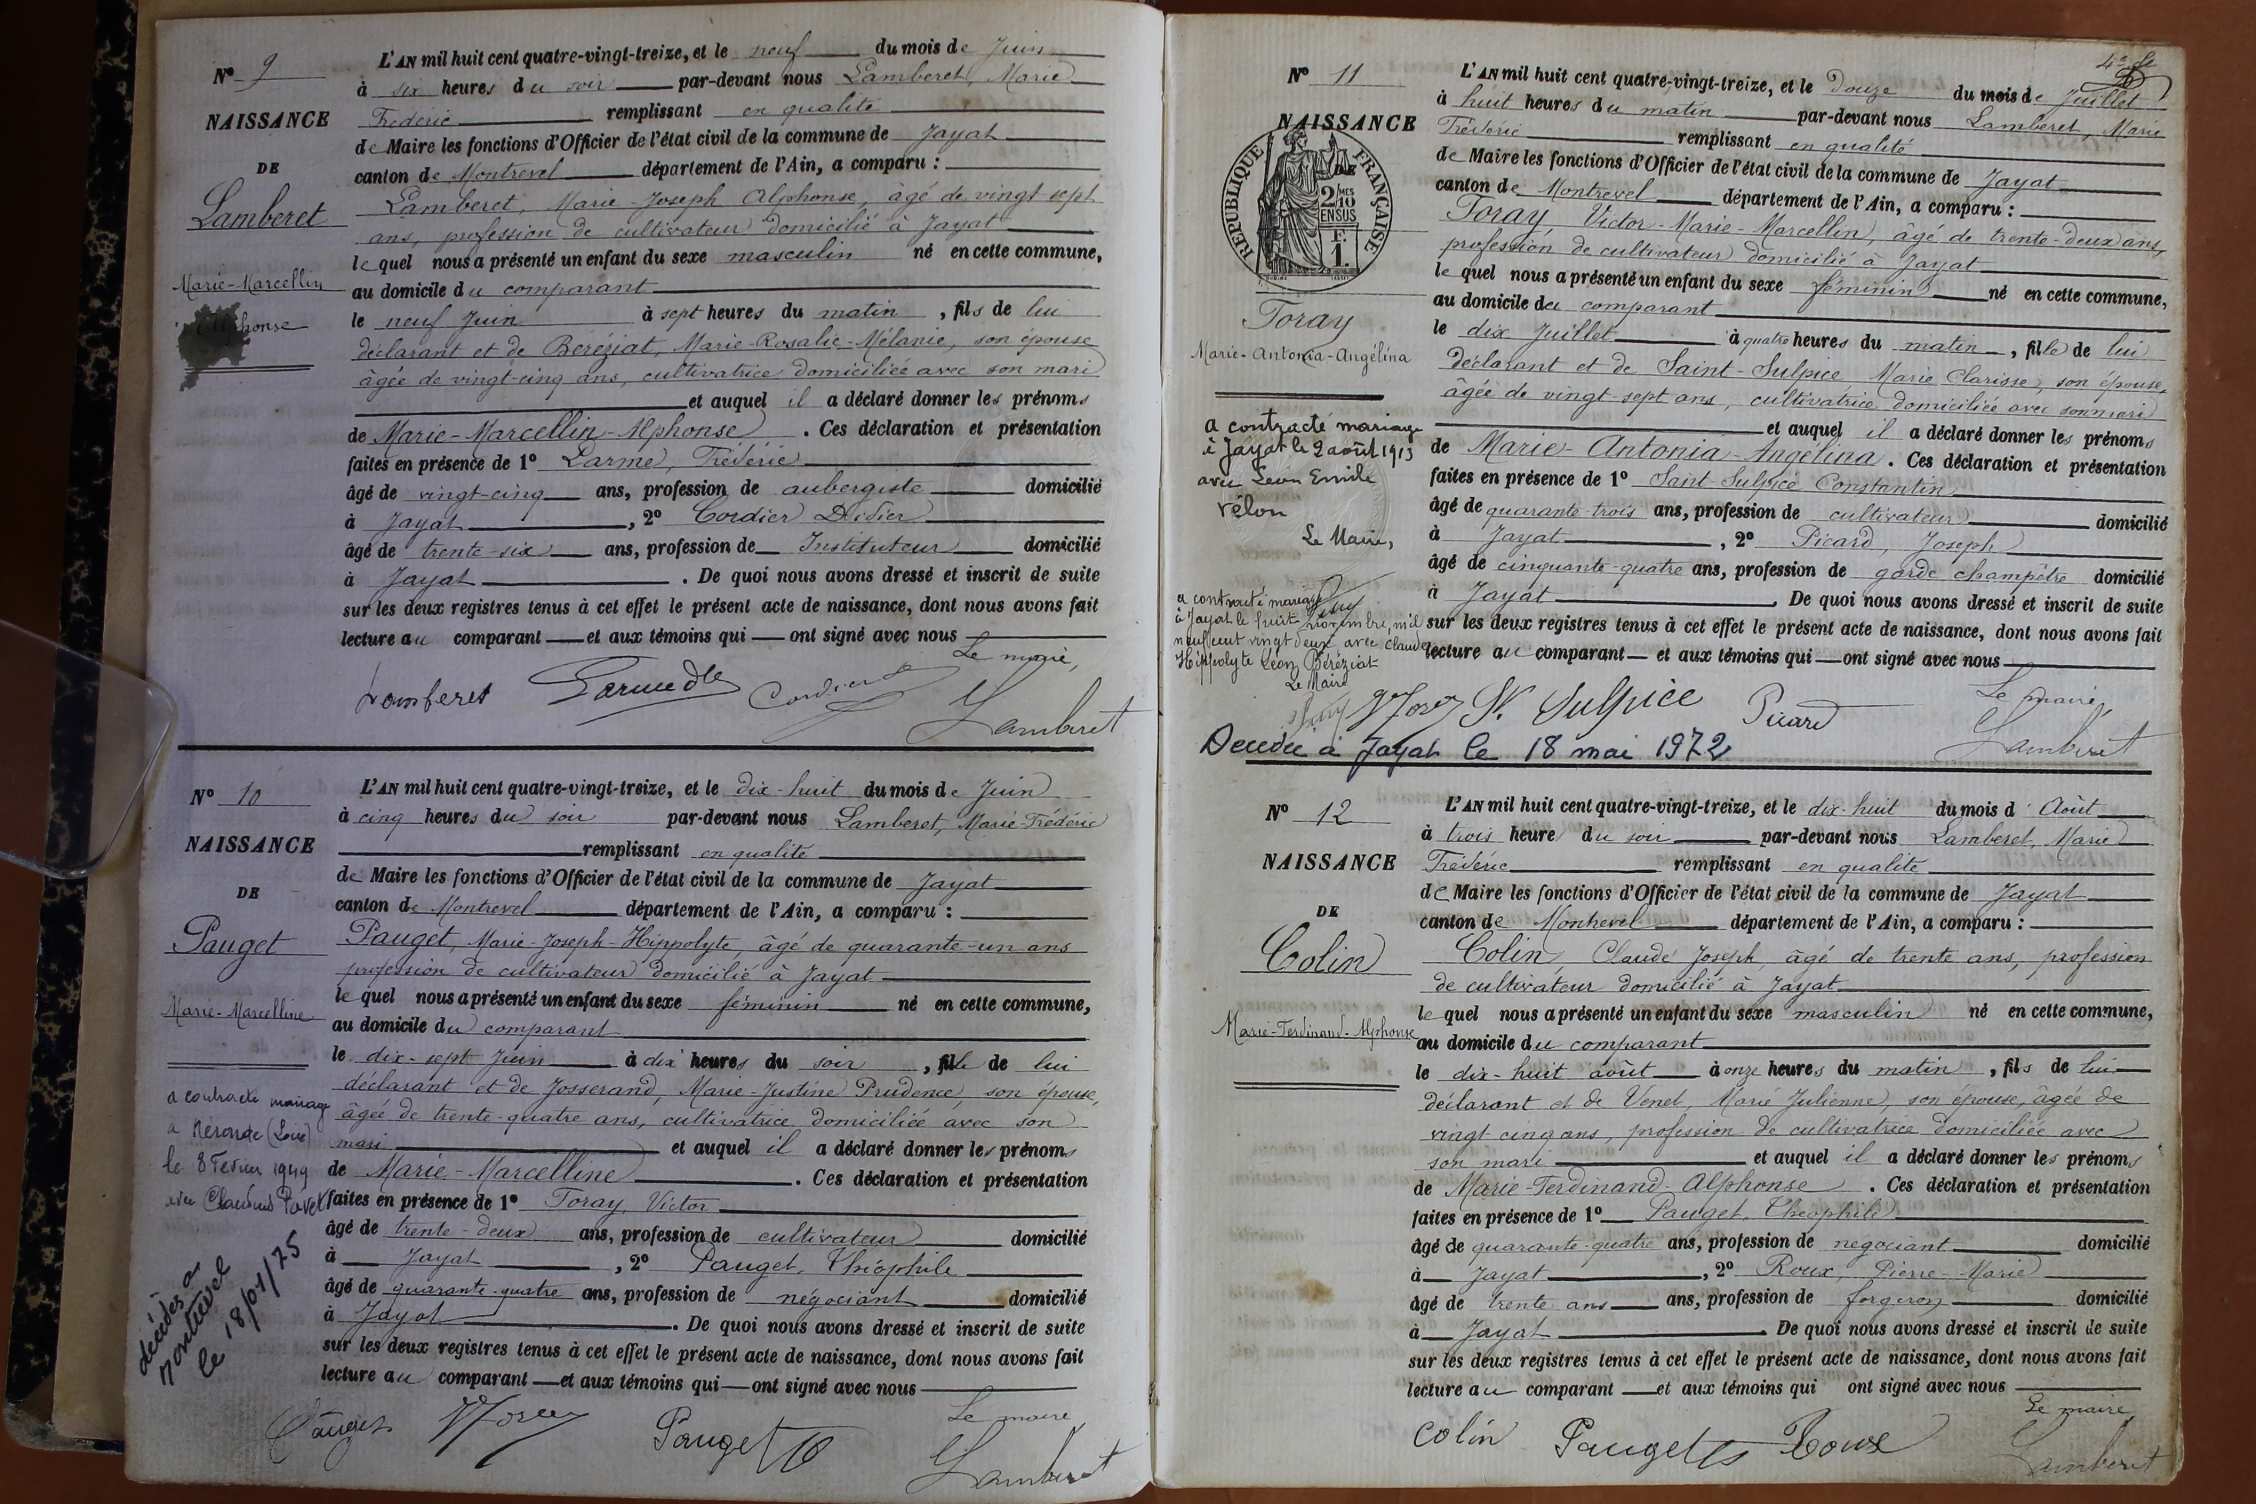 Nº 9
NAISSANCE
DE
Lamberet
Marie-Marcellin
Alphonse
L'AN mil huit cent quatre-vingt-treize, et le neuf du mois de Juin
à six heures du soir par-devant nous Lamberet, Marie
Frédéric remplissant en qualité
de Maire les fonctions d'Officier de l'état civil de la commune de Jayat
canton de Montrevel département de l'Ain, a comparu :
Lamberet, Marie-Joseph Alphonse, âgé de vingt-sept
ans, profession de cultivateur domicilié à Jayat
lequel nous a présenté un enfant du sexe masculin né en cette commune,
au domicile du comparant
le neuf Juin à sept heures du matin, fils de lui
déclarant et de Beréziat, Marie-Rosalie-Mélanie, son épouse
âgée de vingt-cinq ans, cultivatrice domiciliée avec son mari
et auquel il a déclaré donner les prénoms
de Marie-Marcellin-Alphonse. Ces déclaration et présentation
faites en présence de 1º Larme, Frédéric
âgé de vingt-cinq ans, profession de aubergiste domicilié
à Jayat, 2º Cordier Didier
âgé de trente-six ans, profession de Instituteur domicilié
à Jayat. De quoi nous avons dressé et inscrit de suite
sur les deux registres tenus à cet effet le présent acte de naissance, dont nous avons fait
lecture au comparant et aux témoins qui ont signé avec nous
Le maire,
Lamberet Larme Cordier Lamberet
Nº 10
NAISSANCE
DE
Pauget
Marie-Marcelline
a contracté mariage
à Néronde (Loire)
le 8 Fevrier 1949
avec Claudius Pavet
décédés à
montrevel
le 18/01/75
L'AN mil huit cent quatre-vingt-treize, et le dix-huit du mois de Juin
à cinq heures du soir par-devant nous Lamberet, Marie-Frédéric
remplissant en qualité
de Maire les fonctions d'Officier de l'état civil de la commune de Jayat
canton de Montrevel département de l'Ain, a comparu :
Pauget, Marie-Joseph-Hippolyte, âgé de quarante-un ans
profession de cultivateur domicilié à Jayat
lequel nous a présenté un enfant du sexe féminin né en cette commune,
au domicile du comparant
le dix-sept Juin à dix heures du soir, fille de lui
déclarant et de Josserand, Marie-Justine Prudence, son épouse,
âgée de trente-quatre ans, cultivatrice domiciliée avec son
mari et auquel il a déclaré donner les prénoms
de Marie-Marcelline. Ces déclaration et présentation
faites en présence de 1º Toray, Victor
âgé de trente-deux ans, profession de cultivateur domicilié
à Jayat, 2º Pauget, Théophile
âgé de quarante-quatre ans, profession de négociant domicilié
à Jayat. De quoi nous avons dressé et inscrit de suite
sur les deux registres tenus à cet effet le présent acte de naissance, dont nous avons fait
lecture au comparant et aux témoins qui ont signé avec nous
Le maire
Pauget V Toray Pauget Lamberet
Nº 11
NAISSANCE
DE
RÉPUBLIQUE FRANÇAISE
2/10 MES
EN SUS
F.
1.
Toray
Marie-Antonia-Angélina
a contracté mariage
à Jayat le 2 août 1913
avec Léon Emile
Vélon
Le Maire,
a contracté mariage
à Jayat le huit novembre, mil
neuf cent vingt deux avec Claude
Hippolyte Léon Béréziat
Le Maire
L'AN mil huit cent quatre-vingt-treize, et le Douze du mois de Juillet
à huit heures du matin par-devant nous Lamberet, Marie
Frédéric remplissant en qualité
de Maire les fonctions d'Officier de l'état civil de la commune de Jayat
canton de Montrevel département de l'Ain, a comparu :
Toray, Victor-Marie-Marcellin, âgé de trente-deux ans,
profession de cultivateur domicilié à Jayat
lequel nous a présenté un enfant du sexe féminin né en cette commune,
au domicile du comparant
le dix Juillet à quatre heures du matin, fille de lui
déclarant et de Saint-Sulpice Marie Clarisse, son épouse,
âgée de vingt-sept ans, cultivatrice domiciliée avec son mari
et auquel il a déclaré donner les prénoms
de Marie-Antonia-Angélina. Ces déclaration et présentation
faites en présence de 1º Saint-Sulpice Constantin
âgé de quarante-trois ans, profession de cultivateur domicilié
à Jayat, 2º Picard, Joseph
âgé de cinquante-quatre ans, profession de garde champêtre domicilié
à Jayat. De quoi nous avons dressé et inscrit de suite
sur les deux registres tenus à cet effet le présent acte de naissance, dont nous avons fait
lecture au comparant et aux témoins qui ont signé avec nous
Le maire,
V Toray St Sulpice Picard Lamberet
Decédée à Jayat le 18 mai 1972
Nº 12
NAISSANCE
DE
Colin
Marie-Ferdinand-Alphonse
L'AN mil huit cent quatre-vingt-treize, et le dix-huit du mois d' Août
à trois heure du soir par-devant nous Lamberet, Marie
Frédéric remplissant en qualité
de Maire les fonctions d'Officier de l'état civil de la commune de Jayat
canton de Montrevel département de l'Ain, a comparu :
Colin, Claude Joseph, âgé de trente ans, profession
de cultivateur domicilié à Jayat
lequel nous a présenté un enfant du sexe masculin né en cette commune,
au domicile du comparant
le dix-huit août à onze heures du matin, fils de lui
déclarant et de Venet, Marie Julienne, son épouse, âgée de
vingt cinq ans, profession de cultivatrice domiciliée avec
son mari et auquel il a déclaré donner les prénoms
de Marie-Ferdinand-Alphonse. Ces déclaration et présentation
faites en présence de 1º Pauget, Théophile
âgé de quarante-quatre ans, profession de négociant domicilié
à Jayat, 2º Roux, Pierre-Marie
âgé de trente ans ans, profession de forgeron domicilié
à Jayat. De quoi nous avons dressé et inscrit de suite
sur les deux registres tenus à cet effet le présent acte de naissance, dont nous avons fait
lecture au comparant et aux témoins qui ont signé avec nous
Le maire
Colin Pauget Roux Lamberet